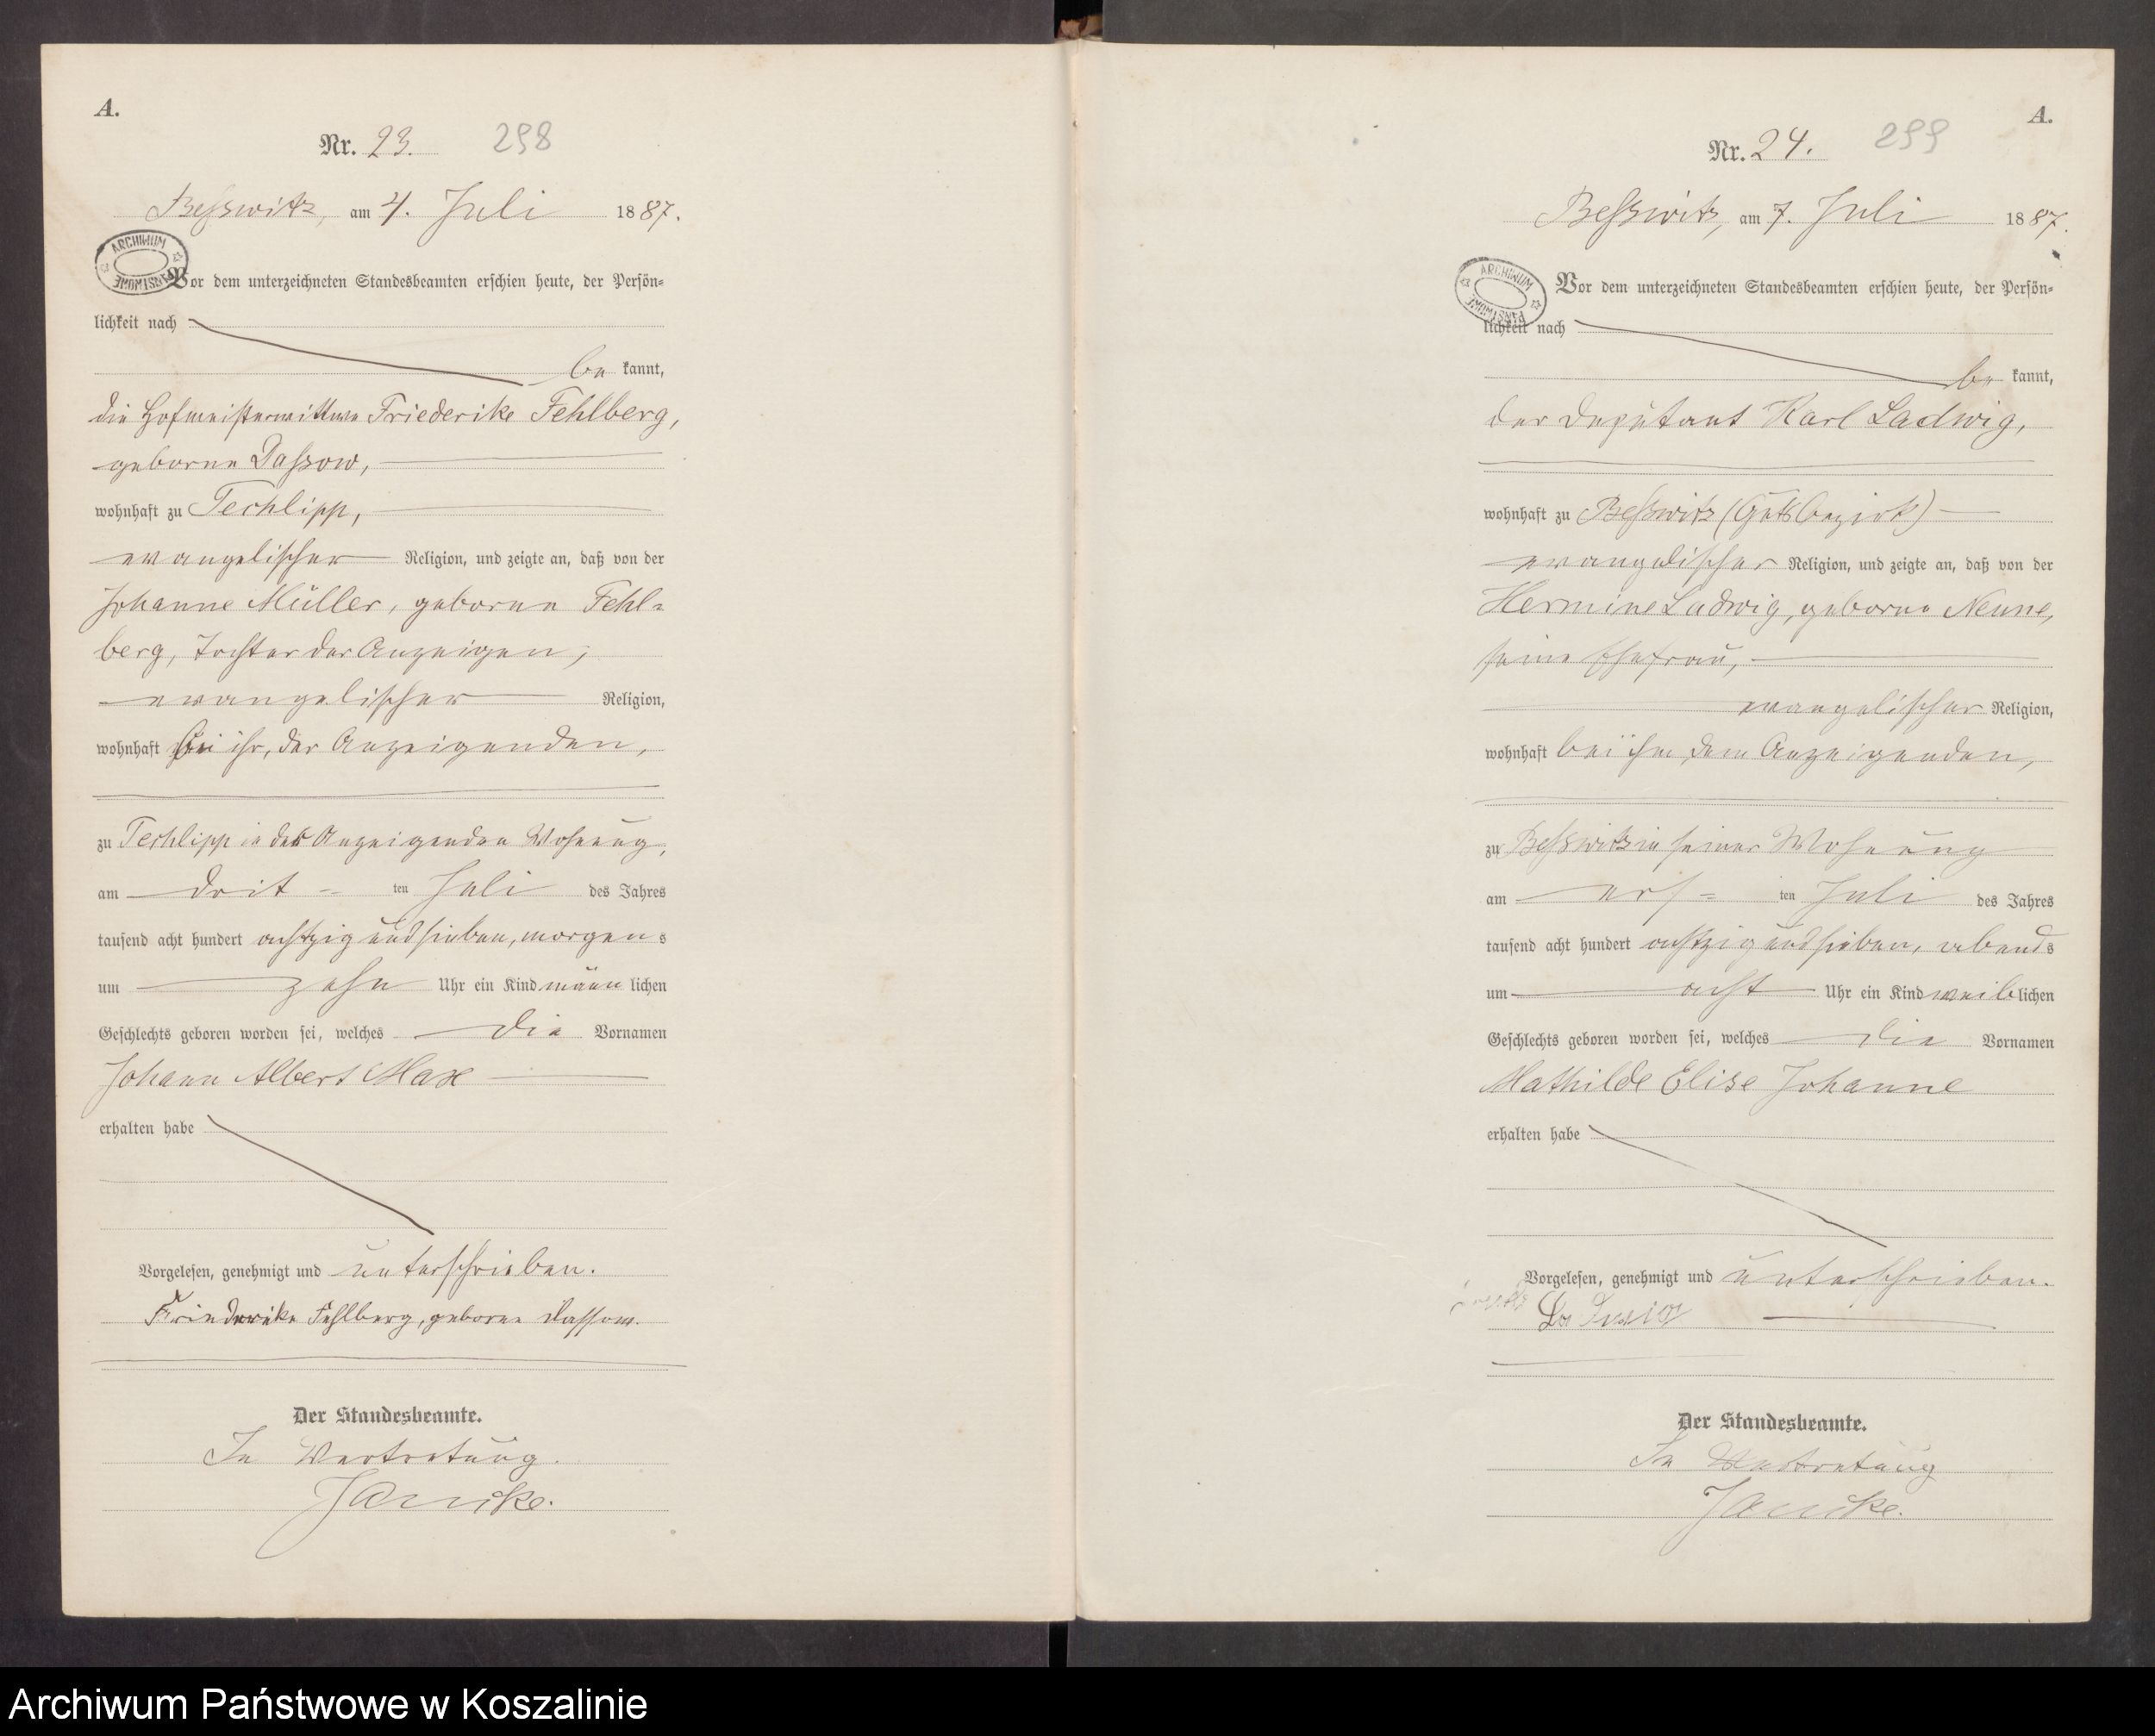 A.
Nr. 23. 298
Beßwitz, am 4. Juli 1887.
ARCHIWUM PAŃSTWOWE
Vor dem unterzeichneten Standesbeamten erschien heute, der Persön-
lichkeit nach
be kannt,
die Hofmeisterwittwe Friederike Fehlberg,
geborne Dassow,
wohnhaft zu Techlipp,
evangelischer Religion, und zeigte an, daß von der
Johanne Müller, geborne Fehl-
berg, Tochter der Anzeigen;
evangelischer Religion,
wohnhaft bei ihr, der Anzeigenden,
zu Techlipp in der Anzeigenden Wohnung,
am drit- ten Juli des Jahres
tausend acht hundert achtzig und sieben, morgens
um zehn Uhr ein Kind männlichen
Geschlechts geboren worden sei, welches die Vornamen
Johann Albert Max
erhalten habe
Vorgelesen, genehmigt und unterschrieben.
Friederike Fehlberg, geborne Dassow.
Der Standesbeamte.
In Vertretung.
Jancke.
A.
Nr. 24. 299
Beßwitz, am 7. Juli 1887.
ARCHIWUM PAŃSTWOWE
Vor dem unterzeichneten Standesbeamten erschien heute, der Persön-
lichkeit nach
be kannt,
der Deputant Karl Ladwig,
wohnhaft zu Beßwitz (Gutsbezirk)
evangelischer Religion, und zeigte an, daß von der
Hermine Ladwig, geborne Nenne,
seine Ehefrau,
evangelischer Religion,
wohnhaft bei ihm, dem Anzeigenden,
zu Beßwitz in seiner Wohnung
am ers- ten Juli des Jahres
tausend acht hundert achtzig und sieben, abends
um acht Uhr ein Kind weiblichen
Geschlechts geboren worden sei, welches die Vornamen
Mathilde Elise Johanne
erhalten habe
Vorgelesen, genehmigt und unterschrieben.
Ladwig
Der Standesbeamte.
In Vertretung
Jancke.
Archiwum Państwowe w Koszalinie